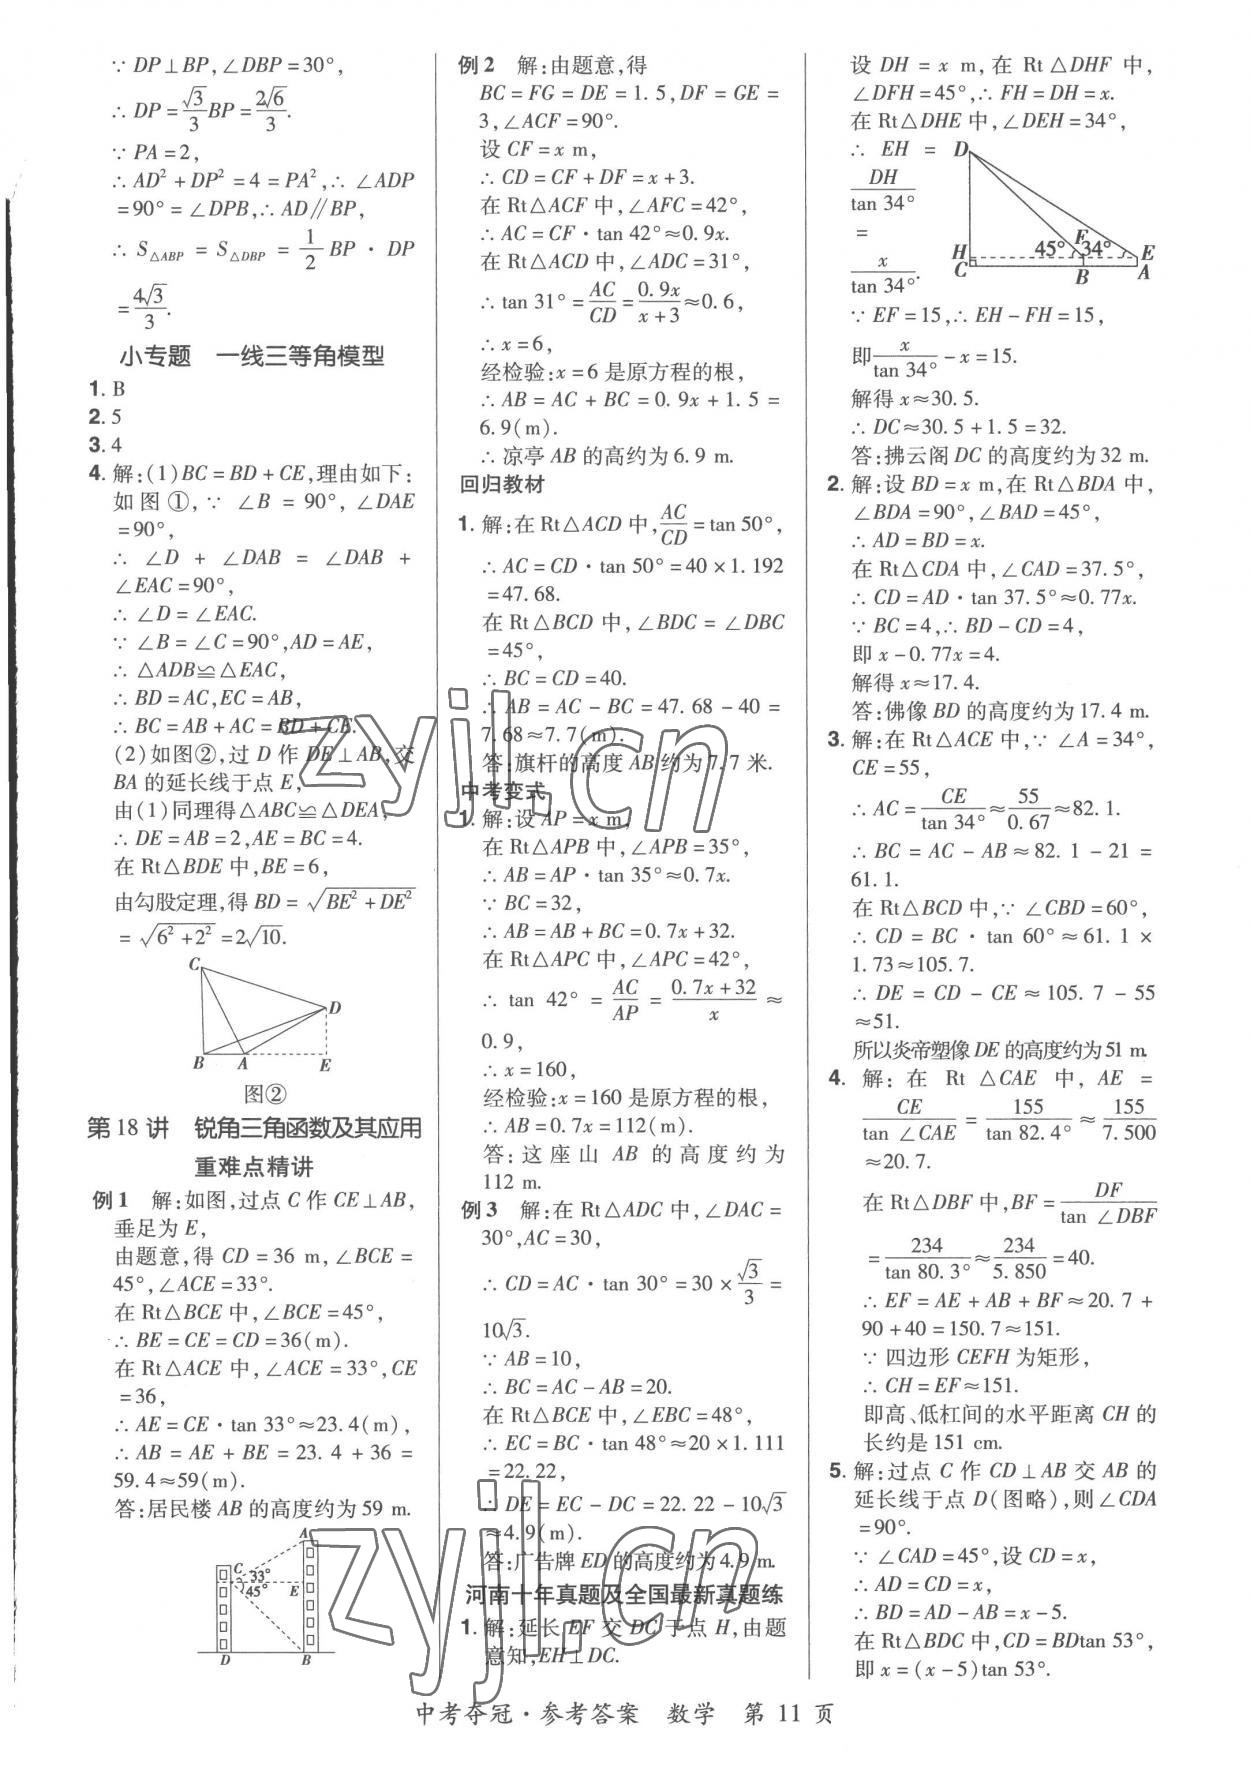 ∵ DP⊥BP,∠DBP=30°,
∴ DP=√3/3 BP=2√6/3.
∵ PA=2,
∴ AD²+DP²=4=PA²,∴ ∠ADP
=90°=∠DPB,∴ AD∥BP,
∴ S△ABP = S△DBP = 1/2 BP · DP
=4√3/3.
小专题　一线三等角模型
1. B
2. 5
3. 4
4. 解:(1)BC=BD+CE,理由如下:
如图①,∵ ∠B=90°,∠DAE
=90°,
∴ ∠D + ∠DAB = ∠DAB +
∠EAC=90°,
∴ ∠D=∠EAC.
∵ ∠B=∠C=90°,AD=AE,
∴ △ADB≌△EAC,
∴ BD=AC,EC=AB,
∴ BC=AB+AC=BD+CE.
(2)如图②,过D作DE⊥AB,交
BA的延长线于点E,
由(1)同理得△ABC≌△DEA,
∴ DE=AB=2,AE=BC=4.
在Rt△BDE中,BE=6,
由勾股定理,得BD=√(BE²+DE²)
=√(6²+2²)=2√10.
C
D
B A E
图②
第18讲　锐角三角函数及其应用
重难点精讲
例1　解:如图,过点C作CE⊥AB,
垂足为E,
由题意,得CD=36 m,∠BCE=
45°,∠ACE=33°.
在Rt△BCE中,∠BCE=45°,
∴ BE=CE=CD=36(m).
在Rt△ACE中,∠ACE=33°,CE
=36,
∴ AE=CE·tan 33°≈23.4(m),
∴ AB = AE + BE = 23.4 + 36 =
59.4≈59(m).
答:居民楼AB的高度约为59 m.
A
C 33°
45° E
D B
例2　解:由题意,得
BC=FG=DE=1.5,DF=GE=
3,∠ACF=90°.
设CF=x m,
∴ CD=CF+DF=x+3.
在Rt△ACF中,∠AFC=42°,
∴ AC=CF·tan 42°≈0.9x.
在Rt△ACD中,∠ADC=31°,
∴ tan 31°=AC/CD=0.9x/(x+3)≈0.6,
∴ x=6,
经检验:x=6是原方程的根,
∴ AB = AC + BC = 0.9x + 1.5 =
6.9(m).
∴ 凉亭AB的高约为6.9 m.
回归教材
1. 解:在Rt△ACD中,AC/CD=tan 50°,
∴ AC=CD·tan 50°=40×1.192
=47.68.
在Rt△BCD中,∠BDC=∠DBC
=45°,
∴ BC=CD=40.
∴ AB = AC - BC = 47.68 - 40 =
7.68≈7.7(m).
答:旗杆的高度AB约为7.7米.
中考变式
1. 解:设AP=x m,
在Rt△APB中,∠APB=35°,
∴ AB=AP·tan 35°≈0.7x.
∵ BC=32,
∴ AB=AB+BC=0.7x+32.
在Rt△APC中,∠APC=42°,
∴ tan 42° = AC/AP = (0.7x+32)/x ≈
0.9,
∴ x=160,
经检验:x=160是原方程的根,
∴ AB=0.7x=112(m).
答:这座山AB的高度约为
112 m.
例3　解:在Rt△ADC中,∠DAC=
30°,AC=30,
∴ CD=AC·tan 30°=30×√3/3=
10√3.
∵ AB=10,
∴ BC=AC-AB=20.
在Rt△BCE中,∠EBC=48°,
∴ EC=BC·tan 48°≈20×1.111
=22.22,
∴ DE=EC-DC=22.22-10√3
≈4.9(m).
答:广告牌ED的高度约为4.9 m.
河南十年真题及全国最新真题练
1. 解:延长EF交DC于点H,由题
意知,EH⊥DC.
设DH=x m,在Rt△DHF中,
∠DFH=45°,∴ FH=DH=x.
在Rt△DHE中,∠DEH=34°,
∴ EH =
DH/tan 34°
=
x/tan 34°.
D
H 45° F 34° E
C B A
∵ EF=15,∴ EH-FH=15,
即x/tan 34°-x=15.
解得x≈30.5.
∴ DC≈30.5+1.5=32.
答:拂云阁DC的高度约为32 m.
2. 解:设BD=x m,在Rt△BDA中,
∠BDA=90°,∠BAD=45°,
∴ AD=BD=x.
在Rt△CDA中,∠CAD=37.5°,
∴ CD=AD·tan 37.5°≈0.77x.
∵ BC=4,∴ BD-CD=4,
即x-0.77x=4.
解得x≈17.4.
答:佛像BD的高度约为17.4 m.
3. 解:在Rt△ACE中,∵ ∠A=34°,
CE=55,
∴ AC=CE/tan 34°≈55/0.67≈82.1.
∴ BC = AC - AB ≈ 82.1 - 21 =
61.1.
在Rt△BCD中,∵ ∠CBD=60°,
∴ CD = BC · tan 60° ≈ 61.1 ×
1.73≈105.7.
∴ DE = CD - CE ≈ 105.7 - 55
≈51.
所以炎帝塑像DE的高度约为51 m.
4. 解:在Rt△CAE中,AE=
CE/tan ∠CAE=155/tan 82.4°≈155/7.500
≈20.7.
在Rt△DBF中,BF=DF/tan ∠DBF
=234/tan 80.3°≈234/5.850=40.
∴ EF=AE+AB+BF≈20.7+
90+40=150.7≈151.
∵ 四边形CEFH为矩形,
∴ CH=EF≈151.
即高、低杠间的水平距离CH的
长约是151 cm.
5. 解:过点C作CD⊥AB交AB的
延长线于点D(图略),则∠CDA
=90°.
∵ ∠CAD=45°,设CD=x,
∴ AD=CD=x,
∴ BD=AD-AB=x-5.
在Rt△BDC中,CD=BDtan 53°,
即x=(x-5)tan 53°.
zyjl.cn
zyjl.cn
中考夺冠·参考答案　数学　第 11 页